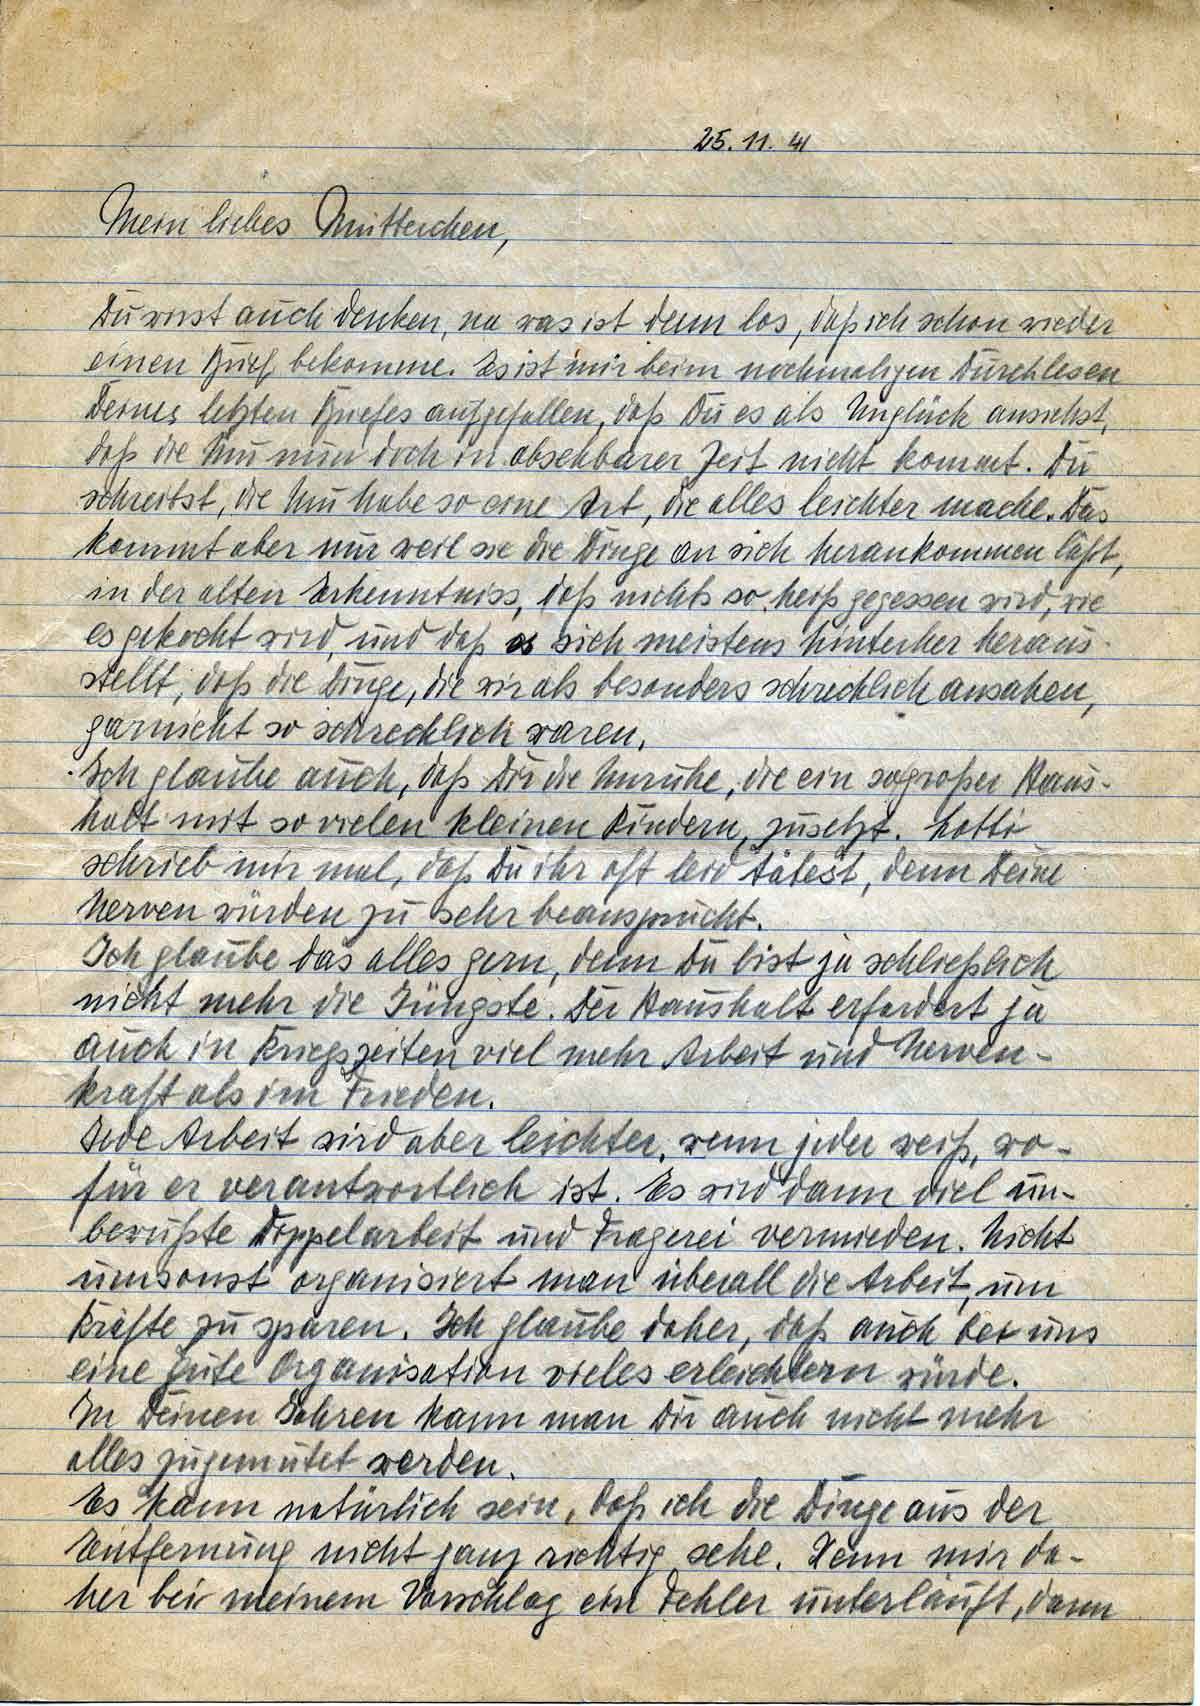 25. 11. 41
Mein liebes Mutterchen,
Du wirst auch denken, na was ist denn los, daß ich schon wieder
einen Brief bekomme. Es ist mir beim nochmaligen Durchlesen
Deines letzten Briefes aufgefallen, daß Du es als Unglück ansiehst,
daß die Mu nun doch in absehbarer Zeit nicht kommt. Du
schreibst, die Mu habe so eine Art, die alles leichter mache. Das
kommt aber nur weil sie die Dinge an sich herankommen läßt,
in der alten Erkenntniss, daß nichts so heiß gegessen wird, wie
es gekocht wird, und daß es sich meistens hinterher heraus-
stellt, daß die Dinge, die wir als besonders schrecklich ansahen,
garnicht so schrecklich waren.
Ich glaube auch, daß Dir die Unruhe, die ein sogroßer Haus-
halt mit so vielen kleinen Kindern, zusetzt. Lotti
schrieb mir mal, daß Du ihr oft leid tätest, denn Deine
Nerven würden zu sehr beansprucht.
Ich glaube das alles gern, denn Du bist ja schließlich
nicht mehr die Jüngste. Der Haushalt erfordert ja
auch in Kriegszeiten viel mehr Arbeit und Nerven-
kraft als im Frieden.
Jede Arbeit wird aber leichter, wenn jeder weiß, wo-
für er verantwortlich ist. Es wird dann viel un-
bewußte Doppelarbeit und Fragerei vermieden. Nicht
umsonst organisiert man überall die Arbeit, um
Kräfte zu sparen. Ich glaube daher, daß auch bei uns
eine gute Organisation vieles erleichtern würde.
In Deinen Jahren kann man Dir auch nicht mehr
alles zugemutet werden.
Es kann natürlich sein, daß ich die Dinge aus der
Entfernung nicht ganz richtig sehe. Wenn mir da-
her bei meinem Vorschlag ein Fehler unterläuft, dann